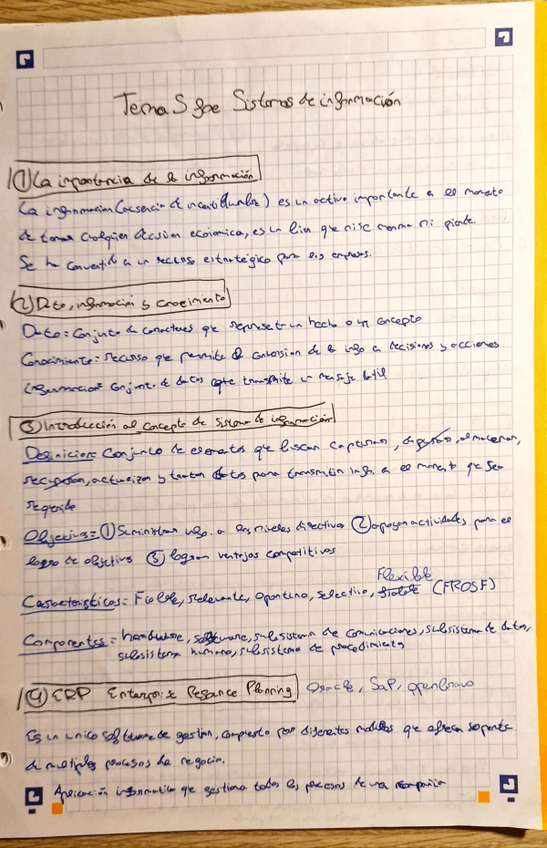 Tema 5 fge Sistemas de información
① La importancia de la información
La información (ausencia de incertidumbre) es un activo importante a el momento
de tomar cualquier decision economica, es un bien que ni se merma ni pierde.
Se ha convertido en un recurso estratégico para las empresas.
② Dato, información y conocimiento
Dato = Conjunto de caracteres que representan un hecho o un concepto
Conocimiento = recurso que permite la conversion de la info a decisiones y acciones
informacion = conjunto de datos que transmite un mensaje util
③ Introducción al concepto de sistema de información
Definicion: Conjunto de elementos que buscan capturar, depurar, almacenar,
recuperar, actualizar y tratar datos para transmitir info. en el momento que sea
requerido
Objetivos = ① Suministrar info. a los niveles directivos ② apoyar actividades para el
logro de objetivos ③ lograr ventajas competitivas
Flexible
Características = Fiable, Relevante, Oportuno, Selectivo, (FROSF)
Componentes = hardware, software, subsistema de comunicaciones, subsistema de datos,
subsistema humano, subsistema de procedimiento
④ ERP Enterprise Resource Planning Oracle, SaP, openbravo
Es un unico software de gestion, compuesto por diferentes modulos que ofrecen soporte
a multiples procesos de negocio.
Aplicación informatica que gestiona todos los procesos de una compañia